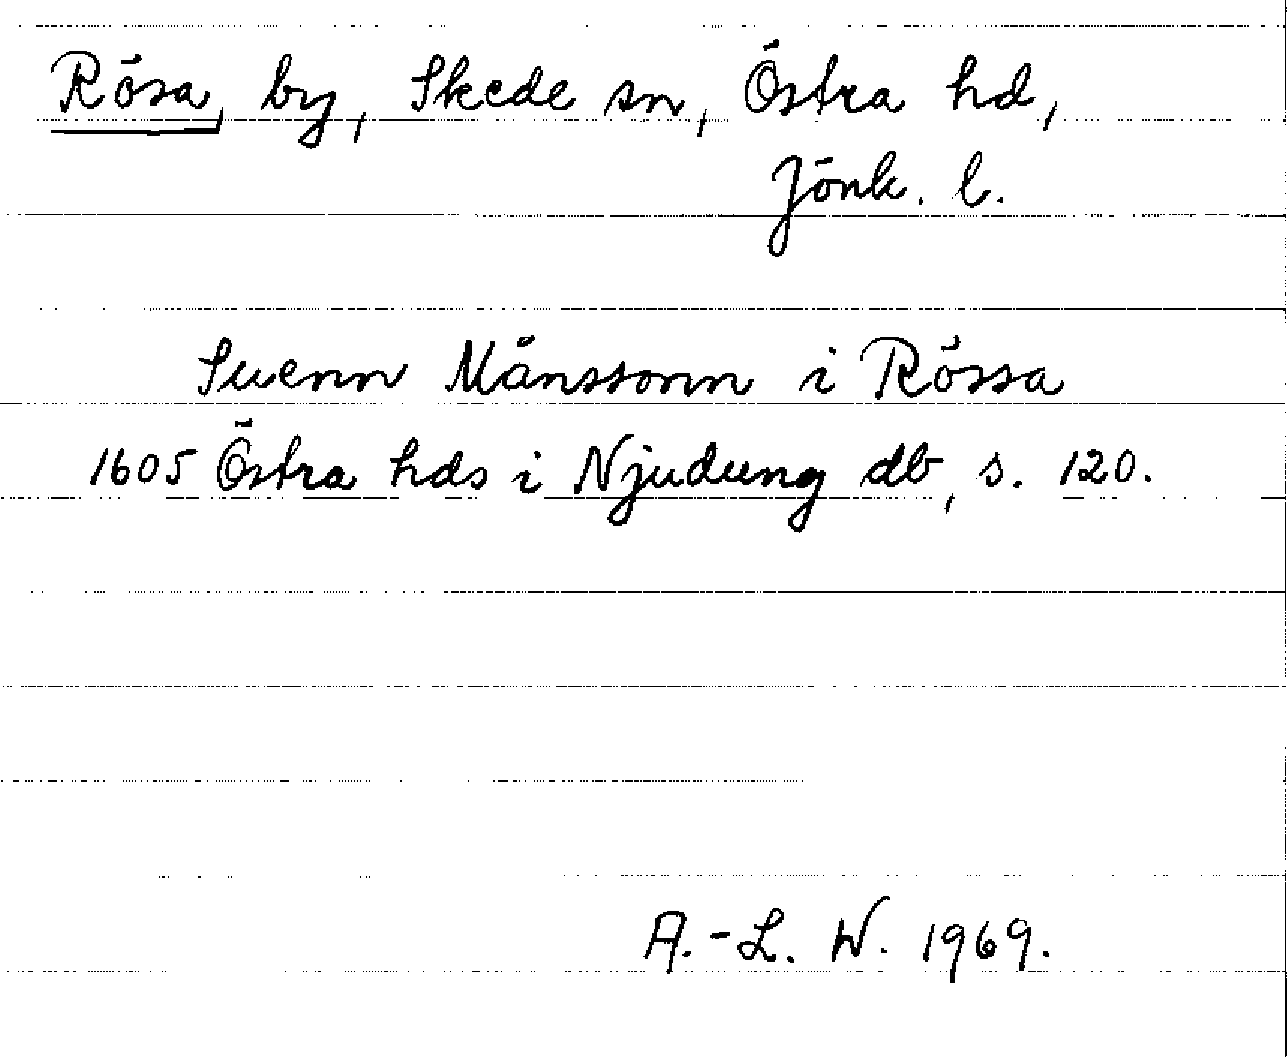 Rösa, by, Skede sn, Östra hd,
Jönk. l.
Suenn Månssonn i Rössa
1605 Östra hds i Njudung db, s. 120.
A.-L. W. 1969.